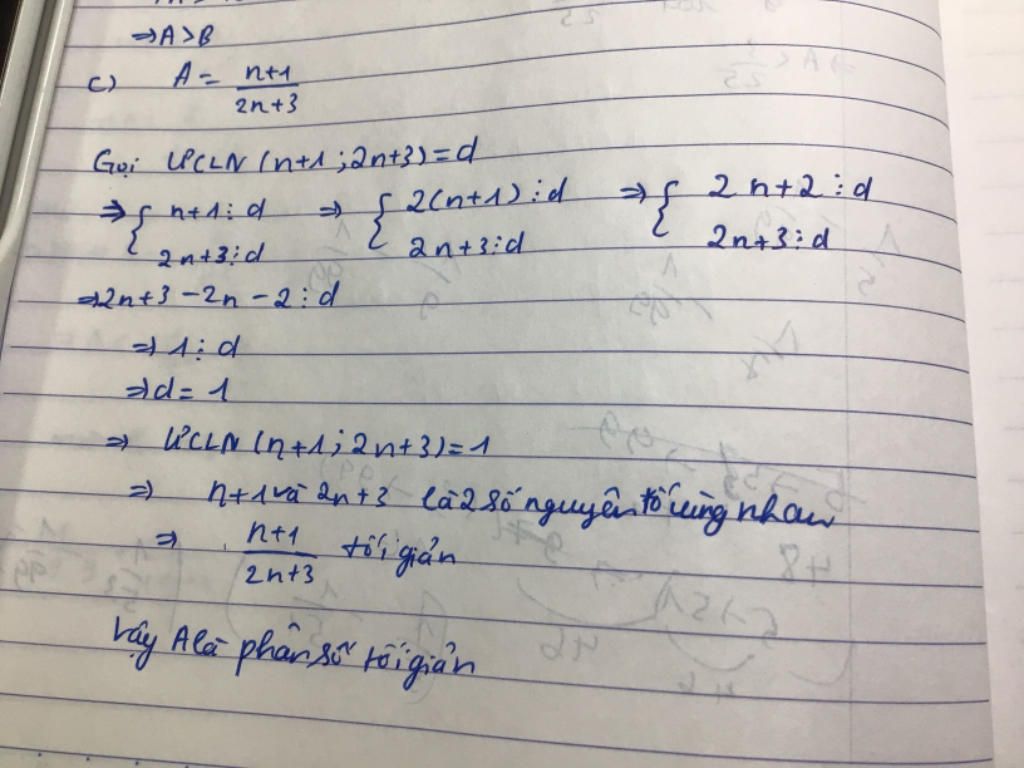 ⇒A>B
c) A = n+1 / 2n+3
Gọi ƯCLN (n+1 ; 2n+3) = d
⇒ { n+1 ⋮ d ⇒ { 2(n+1) ⋮ d ⇒ { 2n+2 ⋮ d
2n+3 ⋮ d 2n+3 ⋮ d 2n+3 ⋮ d
⇒2n+3 -2n -2 ⋮ d
⇒ 1 ⋮ d
⇒d = 1
⇒ ƯCLN (n+1 ; 2n+3) = 1
⇒ n+1 và 2n+3 là 2 số nguyên tố cùng nhau
⇒ n+1 / 2n+3 tối giản
Vậy A là phân số tối giản